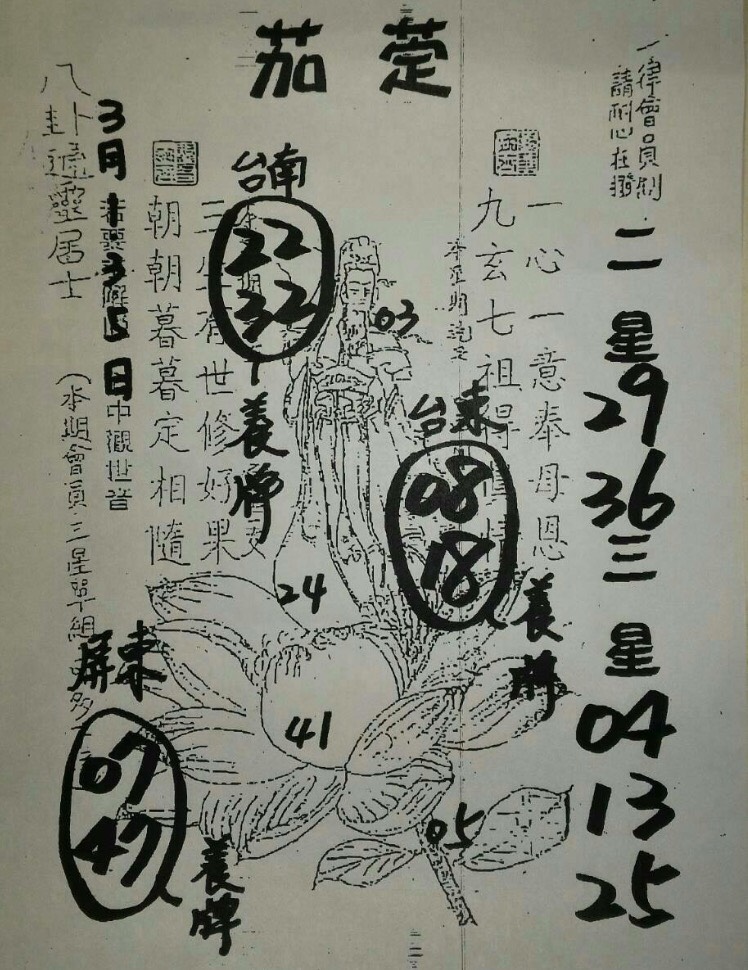 茄萣
一律會員制
請耐心在撥
二星
29
36
三星
04
13
25
一心一意奉母恩
九玄七祖得
台東
08
18
養牌
03
台南
22
32
養牌
世修好果
朝朝暮暮定相隨
24
41
05
八卦通靈居士
3月
5日
中觀世音
(本期會員三星單組
屏東
07
47
養牌